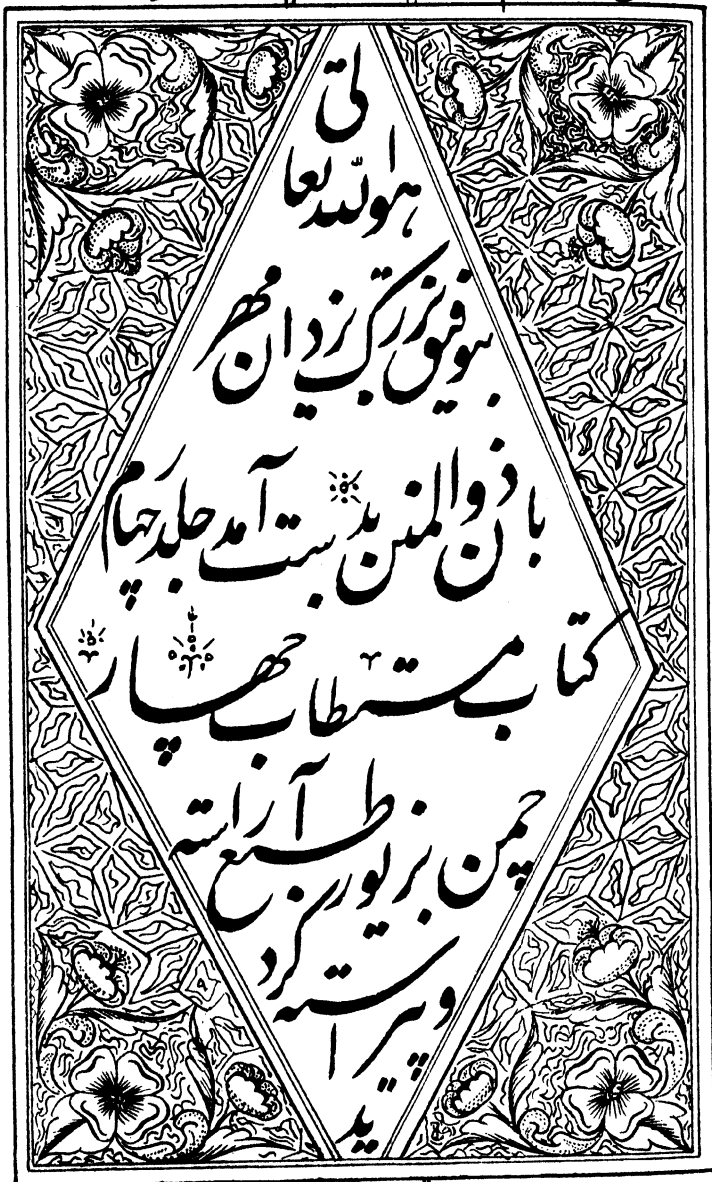 هو الله تعالی
بتوفیق بزرگ یزدان مهر
باذن ذوالمنن بدست آمد جلد چهارم
کتاب مستطاب چهار
چمن بزیور طبع آراسته
و پیراسته گردید